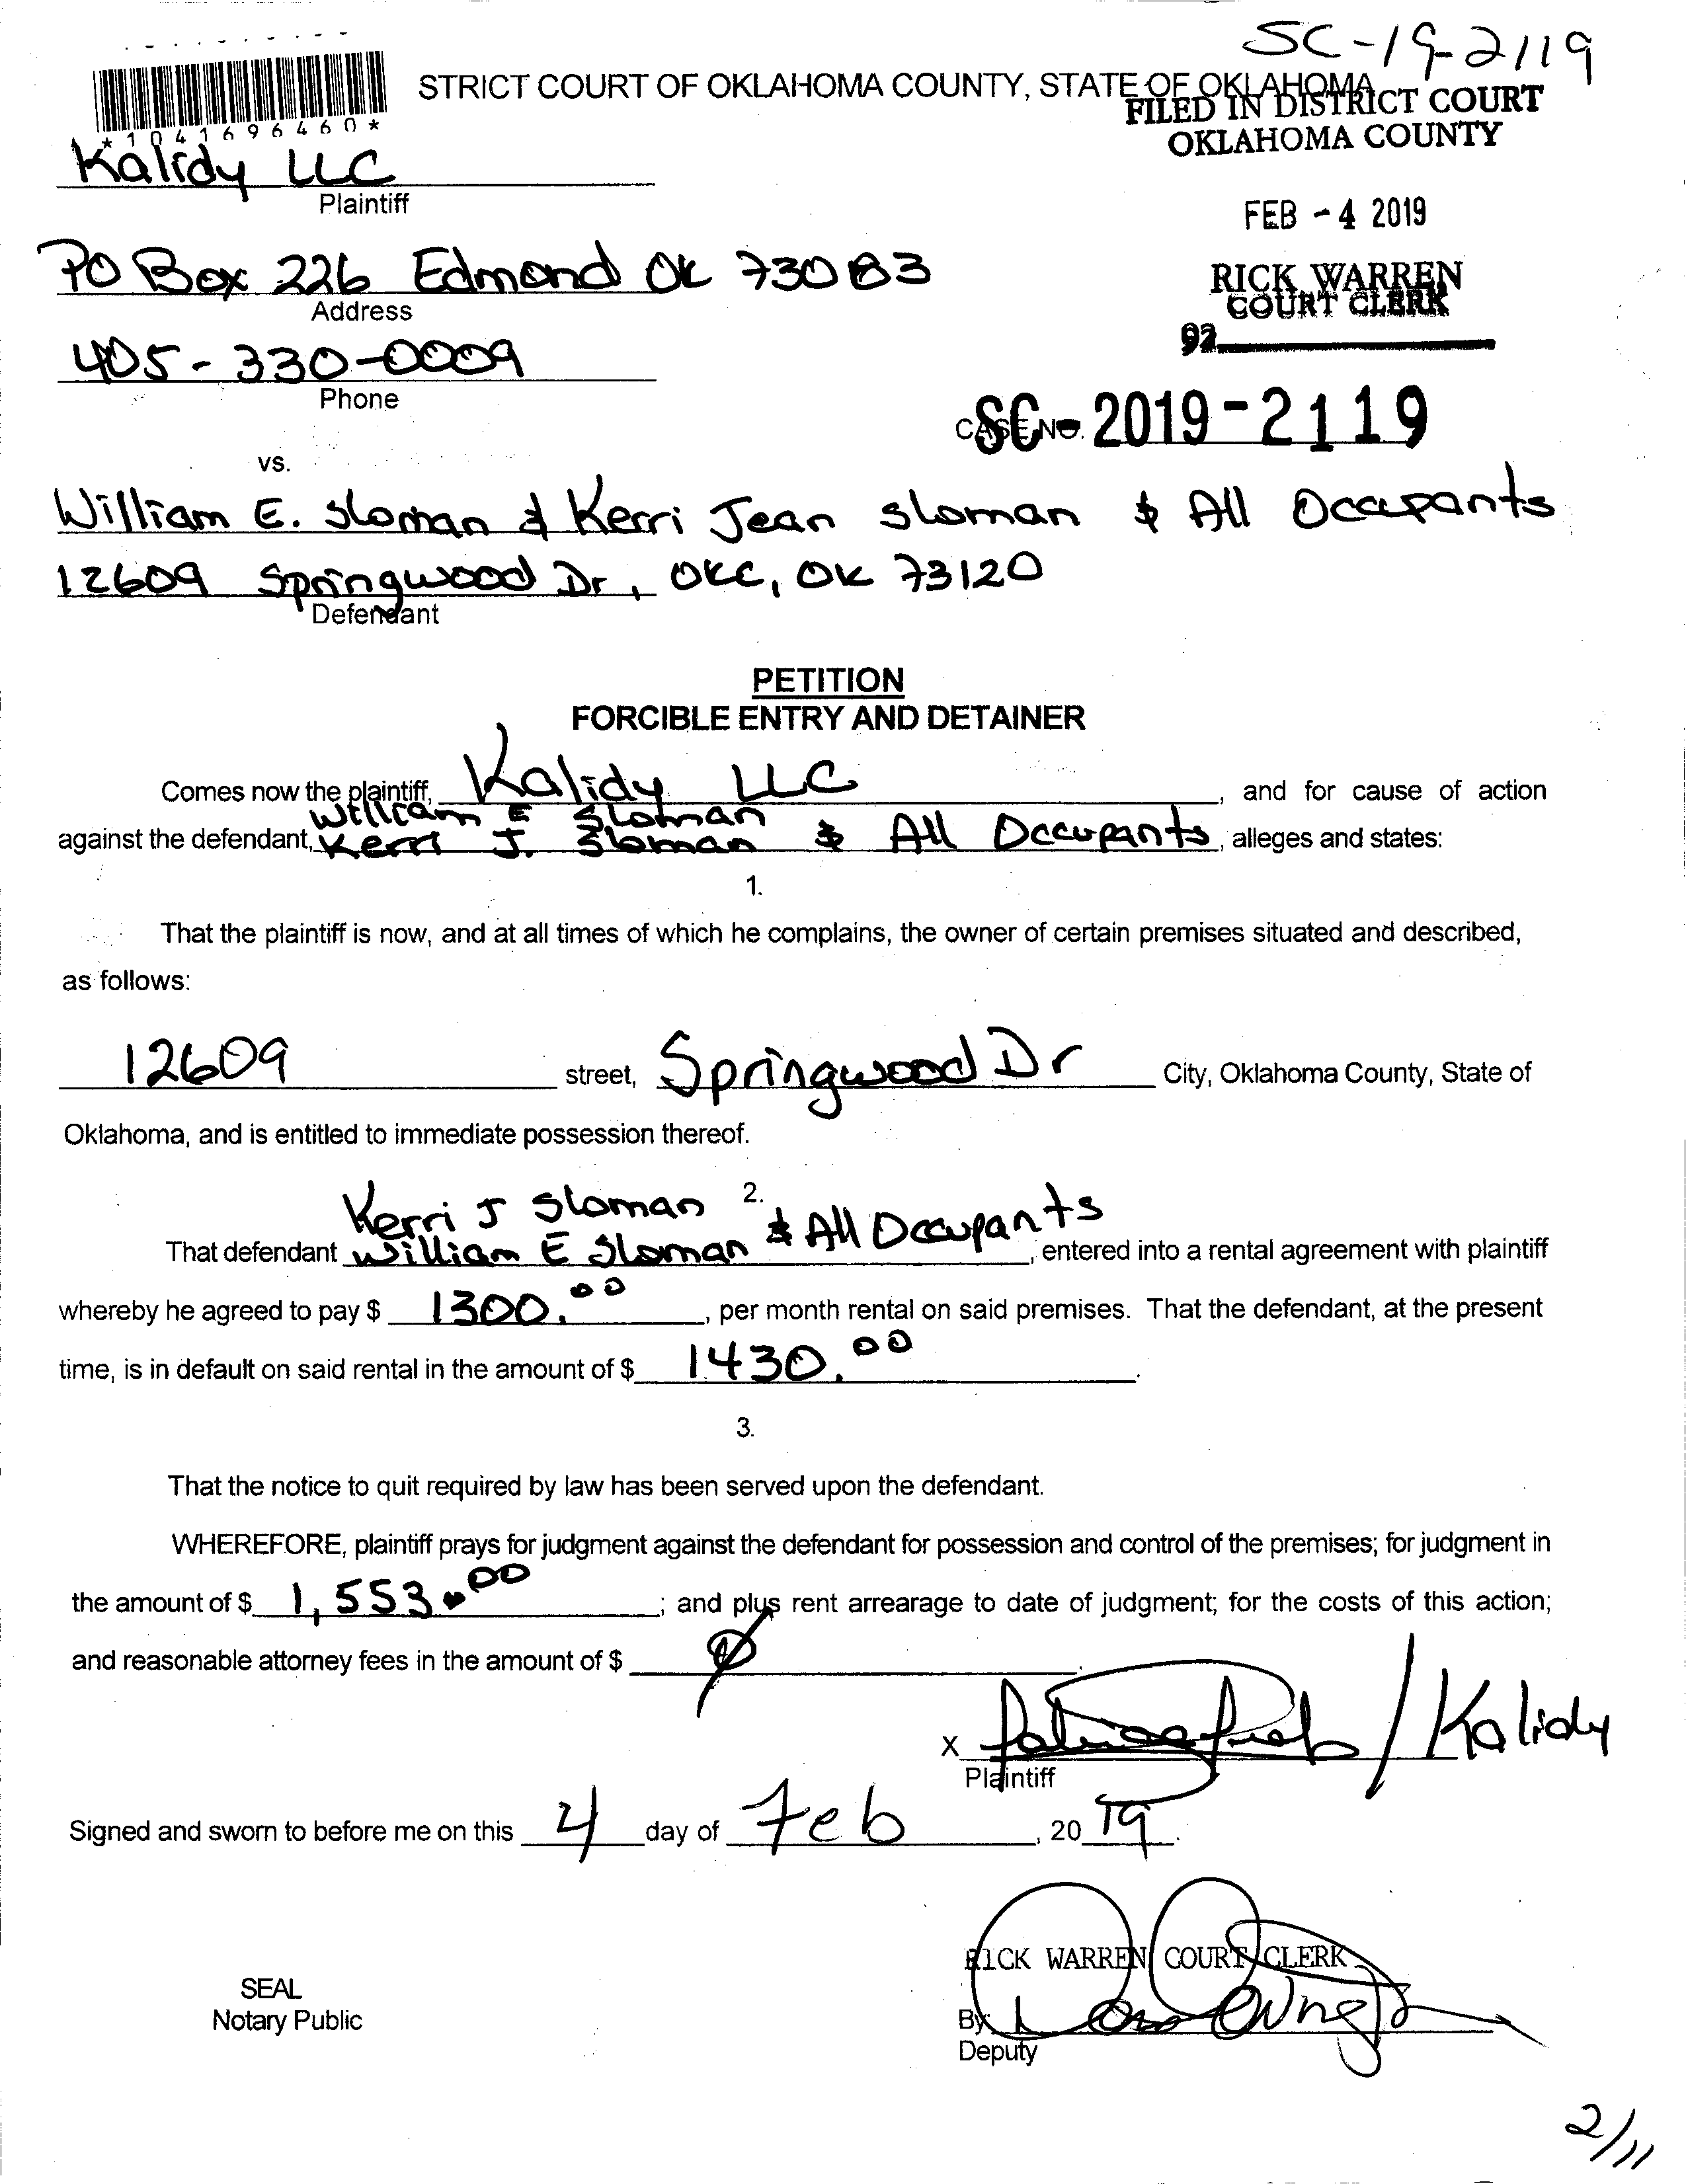 SC-19-2119
STRICT COURT OF OKLAHOMA COUNTY, STATE OF OKLAHOMA
FILED IN DISTRICT COURT
OKLAHOMA COUNTY
*1041696460*
Kalidy LLC
Plaintiff
FEB - 4 2019
PO Box 226 Edmond OK 73083
Address
RICK WARREN
COURT CLERK
405-330-0009
Phone
CASE NO. SC-2019-2119
vs.
William E. Sloman & Kerri Jean Sloman & All Occupants
12609 Springwood Dr, OKC, OK 73120
Defendant
PETITION
FORCIBLE ENTRY AND DETAINER
Comes now the plaintiff, Kalidy LLC, and for cause of action
William E Sloman
against the defendant, Kerri J. Sloman & All Occupants, alleges and states:
1.
That the plaintiff is now, and at all times of which he complains, the owner of certain premises situated and described,
as follows:
12609 street, Springwood Dr City, Oklahoma County, State of
Oklahoma, and is entitled to immediate possession thereof.
2.
Kerri J Sloman
That defendant William E Sloman & All Occupants, entered into a rental agreement with plaintiff
whereby he agreed to pay $ 1300.00, per month rental on said premises. That the defendant, at the present
time, is in default on said rental in the amount of $ 1430.00.
3.
That the notice to quit required by law has been served upon the defendant.
WHEREFORE, plaintiff prays for judgment against the defendant for possession and control of the premises; for judgment in
the amount of $ 1,553.00; and plus rent arrearage to date of judgment; for the costs of this action;
and reasonable attorney fees in the amount of $ .
X / Kalidy
Plaintiff
Signed and sworn to before me on this 4 day of Feb, 2019.
RICK WARREN COURT CLERK
SEAL
Notary Public
By:
Deputy
2/11